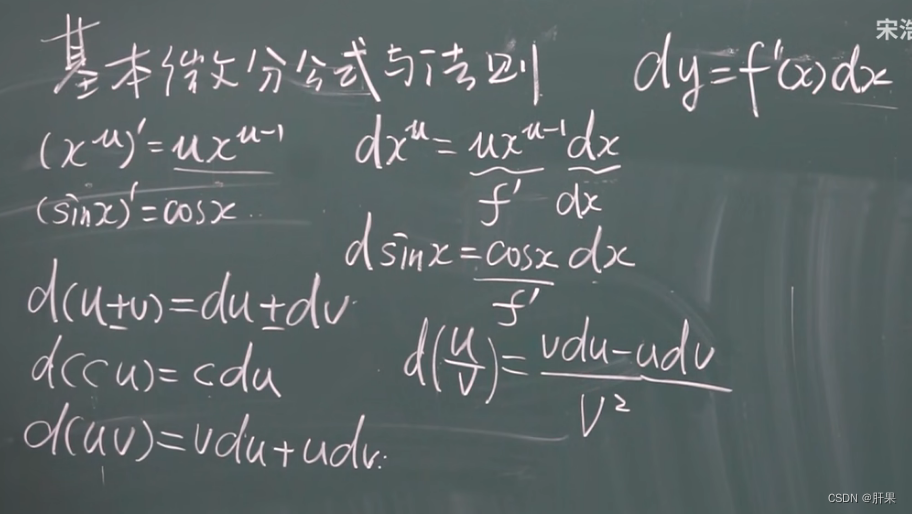 宋浩
基本微分公式与法则 dy=f'(x)dx
(x^u)'=ux^{u-1} dx^u=ux^{u-1}dx
f' dx
(sinx)'=cosx
dsinx=cosx dx
f'
d(u±v)=du±dv
d(cu)=cdu d(u/v)=(vdu-udv)/v²
d(uv)=vdu+udv
CSDN @肝果